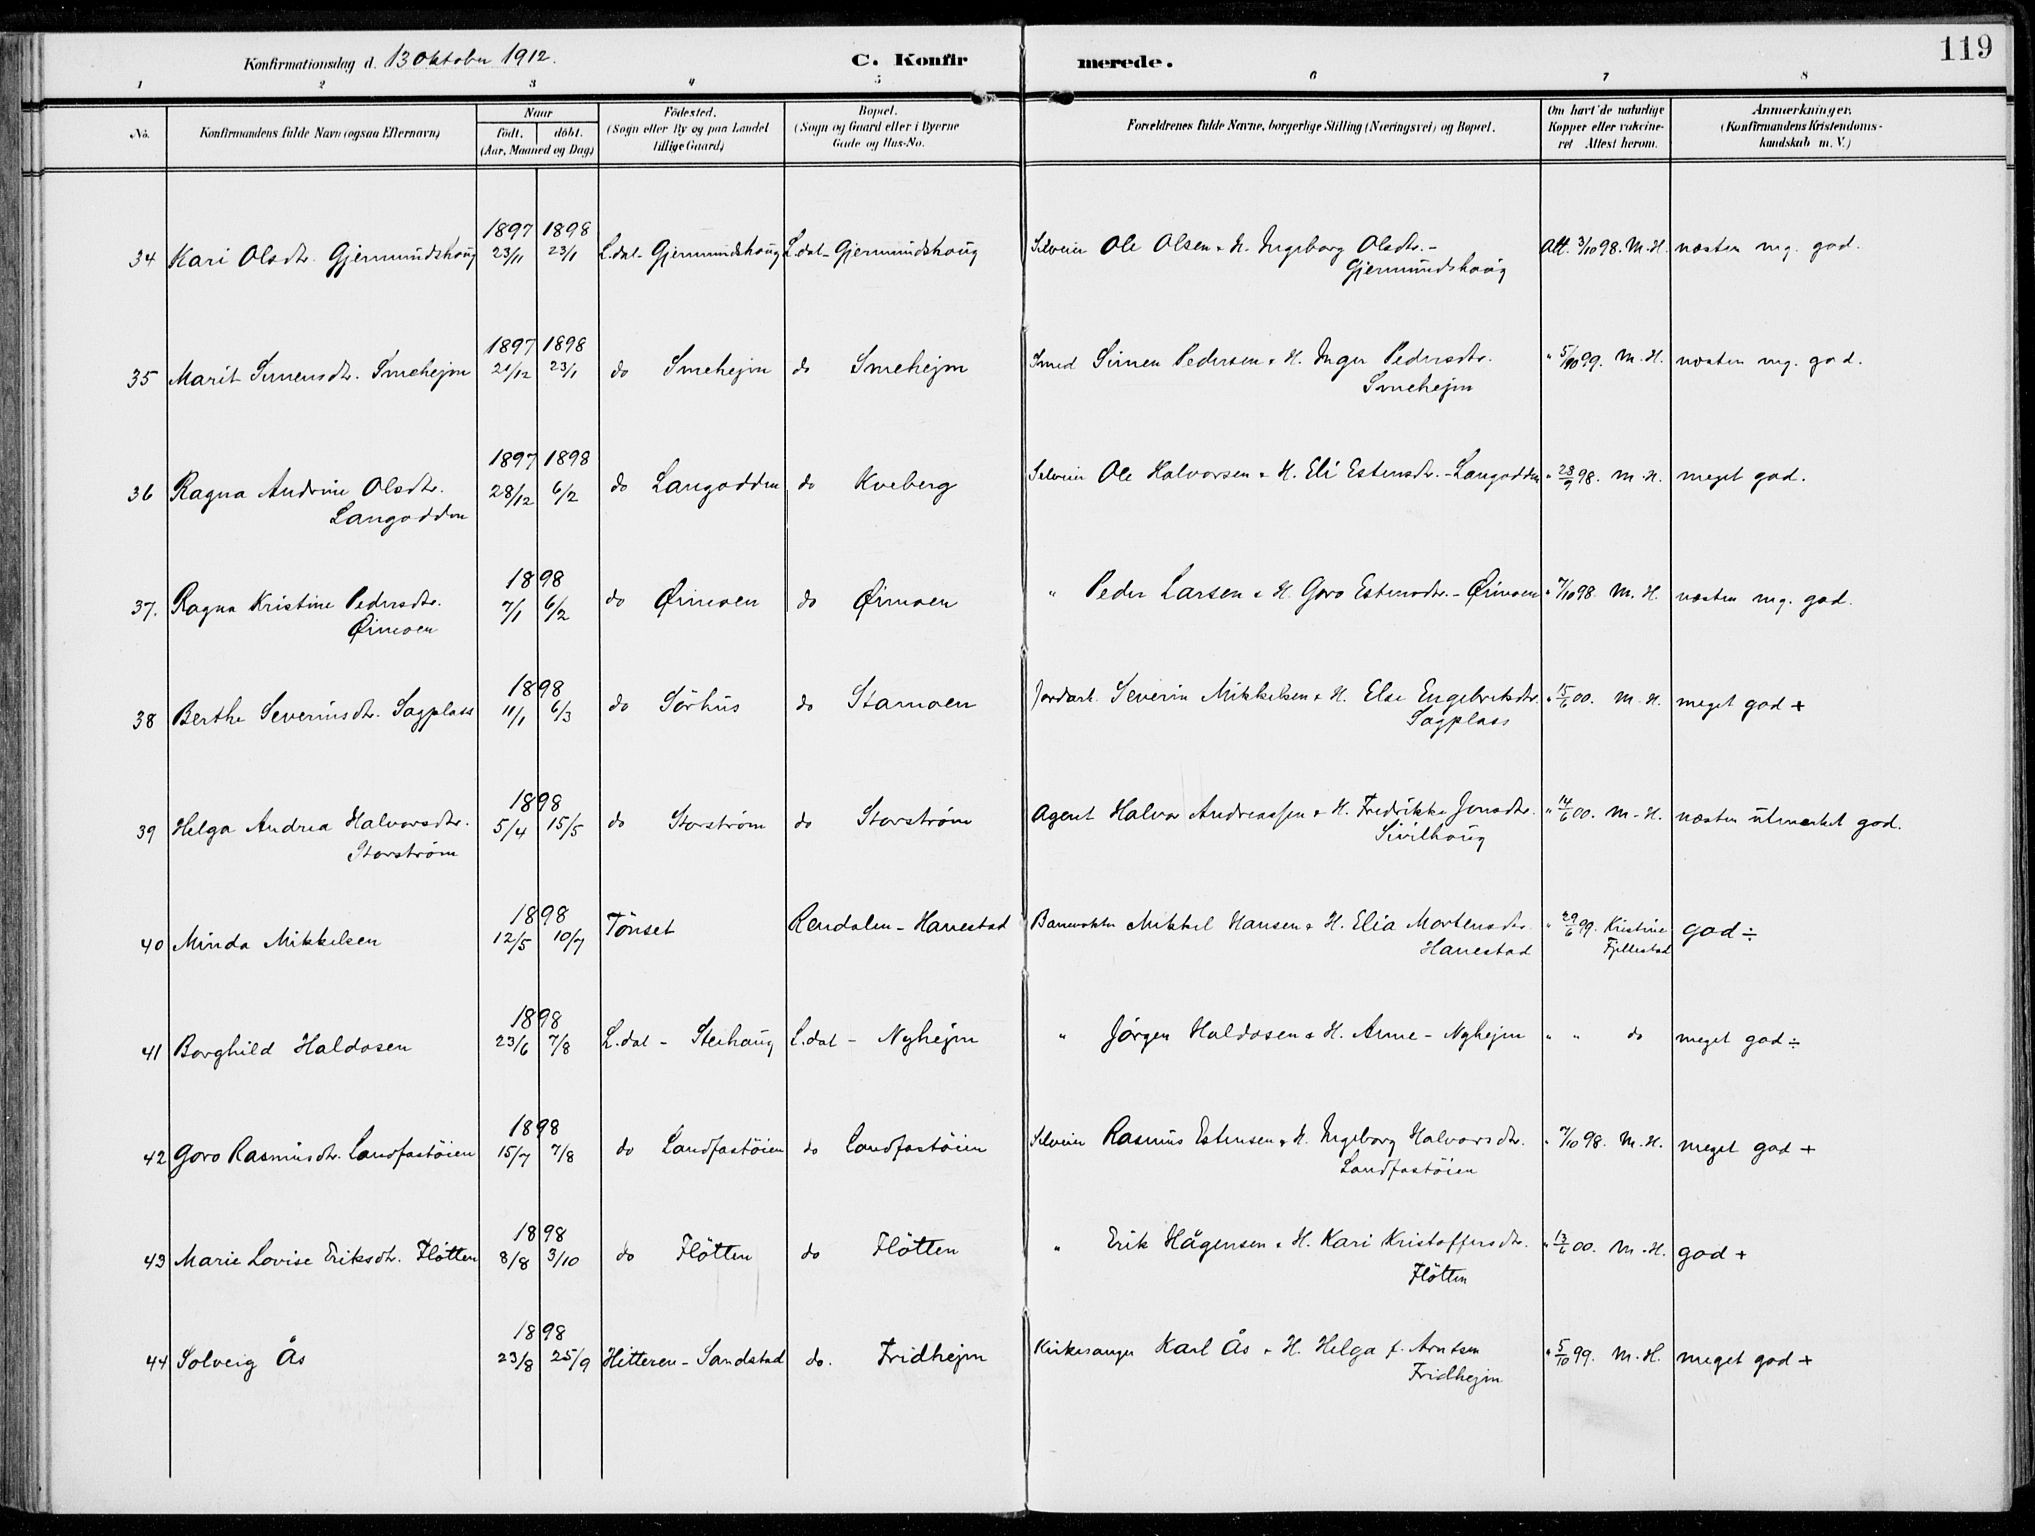 119
Konfirmationsdag d. 13 Oktober 1912.
C. Konfirmerede.
1 2 3 4 5 6 7 8
No.
Konfirmandens fulde Navn (ogsaa Efternavn)
Naar
födt. döbt.
(Aar, Maaned og Dag)
Födested.
(Sogn eller By og paa Landet
tillige Gaard)
Bopæl.
(Sogn og Gaard eller i Byerne
Gade og Hus-No.
Forældrenes fulde Navne, borgerlige Stilling (Næringsvei) og Bopæl.
Om havt de naturlige
Kopper eller vakcine-
ret Attest herom.
Anmærkninger.
(Konfirmandens Kristendoms-
kundskab m. V.)
1897 1898
34 Kari Olsdtr. Gjermundshoug 23/11 23/1 L.dal - Gjermundshoug L.dal - Gjermundshoug Selveier Ole Olsen & H. Ingeborg Olsdtr. - Att. 3/10 98. M.H. næsten mg. god.
Gjermundshoug
1897 1898
35 Marit Simensdtr. Smehejm 21/12 23/1 do Smehejm do Smehejm Smed Simen Pedersen & H. Inger Pedersdtr. " 5/10 99. M.H. næsten mg. god.
Smehejm
1897 1898
36 Ragna Andrine Olsdtr. 28/12 6/2 do Langodden do Kveberg Selveier Ole Halvorsen & H. Eli Estensdtr. - Langodden " 28/9 98. M.H. meget god.
Langodden
1898
37. Ragna Kristine Pedersdtr. 7/1 6/2 do Ørimoen do Ørimoen " Peder Larsen & H. Goro Estensdtr. - Ørimoen " 7/10 98. M.H. næsten mg. god.
Ørimoen
1898
38 Berthe Severinsdtr. Sagplass 11/1 6/3 do Sörhus do Stamoen Jordarb. Severin Mikkelsen & H. Else Engebriktsdtr. " 15/6 00. M.H. meget god +
Sagplass
1898
39 Helga Andrea Halvorsdtr. 5/4 15/5 do Storstrøm do Storstrøm Agent Halvor Andreassen & H. Fredrikke Jonsdtr. " 14/6 00. M.H. næsten utmerket god.
Storstrøm Sivilhoug
1898
40 Minda Mikkelsen 12/5 10/7 Tönset Rendalen - Hanestad Banevokter Mikkel Hansen & H. Elia Mortensdtr. " 29/6 99. Kristine god ÷
Hanestad Fjellestad
1898
41 Borghild Haldosen 23/6 7/8 L.dal - Steihoug L.dal - Nyhejm " Jörgen Haldosen & H. Anne - Nyhejm " " do meget god ÷
1898
42 Goro Rasmusdtr. Landfastöien 15/7 7/8 do Landfastöien do Landfastöien Selveier Rasmus Estensen & H. Ingeborg Halvorsdtr. " 7/10 98. M.H. meget god +
Landfastöien
1898
43 Marie Lovise Eriksdtr. Flötten 8/8 3/10 do Flötten do Flötten " Erik Hågensen & H. Kari Kristoffersdtr. " 13/6 00. M.H. god +
Flötten
1898
44 Solveig Ås 23/8 25/9 Hitteren - Sandstad do. Fridhejm Kirkesanger Karl Ås & H. Helga f. Arntsen " 5/10 99. M.H. meget god +
Fridhejm